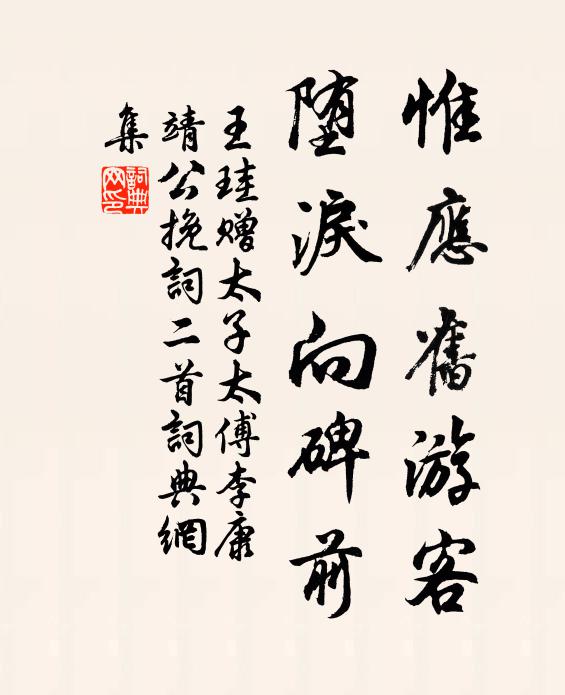 惟應舊游客
堕淚向碑前
王珪赠太子太傅李康
靖公挽詞二首詞典網
集
詞典
网印